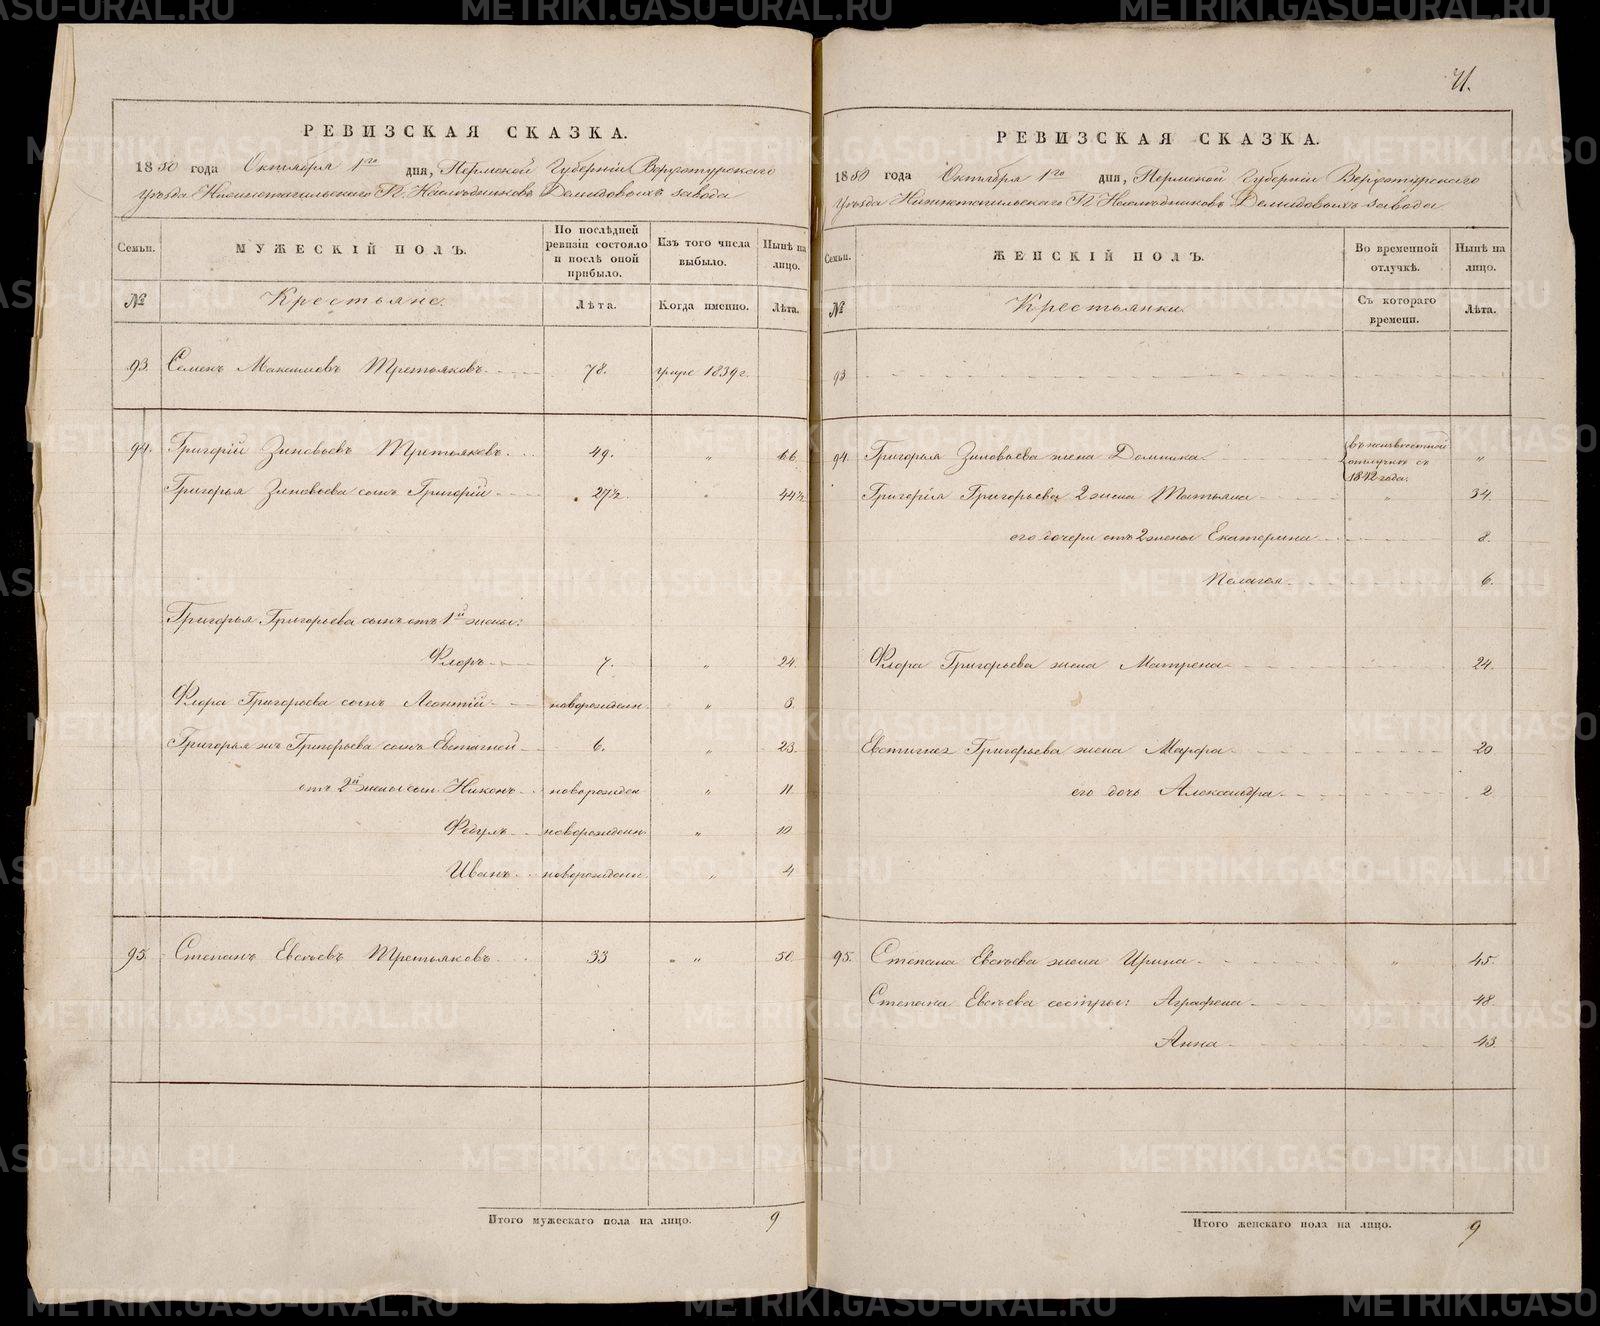 РЕВИЗСКАЯ СКАЗКА.
1850 года Октября 1го дня, Пермской Губерніи Верхотурскаго
Уѣзда Нижнетагильскаго Г.г. Наслѣдниковъ Демидовыхъ завода
Семьи. МУЖЕСКІЙ ПОЛЪ. По послѣдней ревизіи состояло и послѣ оной прибыло. Изъ того числа выбыло. Нынѣ на лицо.
№ Крестьяне. Лѣта. Когда именно. Лѣта.
93. Семенъ Максимовъ Третьяковъ 78. умре 1839 г.
94. Григорій Зиновьевъ Третьяковъ 49. „ 66.
Григорья Зиновьева сынъ Григорій 27½ „ 44½
Григорья Григорьева сынъ отъ 1й жены:
Флоръ 7. „ 24.
Флора Григорьева сынъ Леонтій новорожденн. „ 3.
Григорья жъ Григорьева сынъ Евстигней 6. „ 23.
отъ 2й жены сын. Никонъ новорожден „ 11.
Федулъ новорожденн „ 10
Иванъ новорожденн „ 4
95. Степанъ Евсѣевъ Третьяковъ 33 „ „ 50.
Итого мужескаго пола на лицо. 9
71.
РЕВИЗСКАЯ СКАЗКА.
1850 года Октября 1го дня, Пермской Губерніи Верхотурскаго
Уѣзда Нижнетагильскаго Г.г. Наслѣдниковъ Демидовыхъ завода
Семьи. ЖЕНСКІЙ ПОЛЪ. Во временной отлучкѣ. Нынѣ на лицо.
№ Крестьянки. Съ котораго времени. Лѣта.
93
94. Григорья Зиновьева жена Домника въ неизвестной отлучке съ 1842 года. „
Григорія Григорьева 2 жена Татьяна „ 34.
его дочери отъ 2 жены Екатерина 8.
Пелагея 6.
Флора Григорьева жена Матрена 24.
Евстигнея Григорьева жена Марфа 20
его дочь Александра 2
95. Степана Евсѣева жена Ирина „ 45.
Степана Евсѣева сестры: Аграфена 48.
Анна 43.
Итого женскаго пола на лицо. 9
METRIKI.GASO-URAL.RU